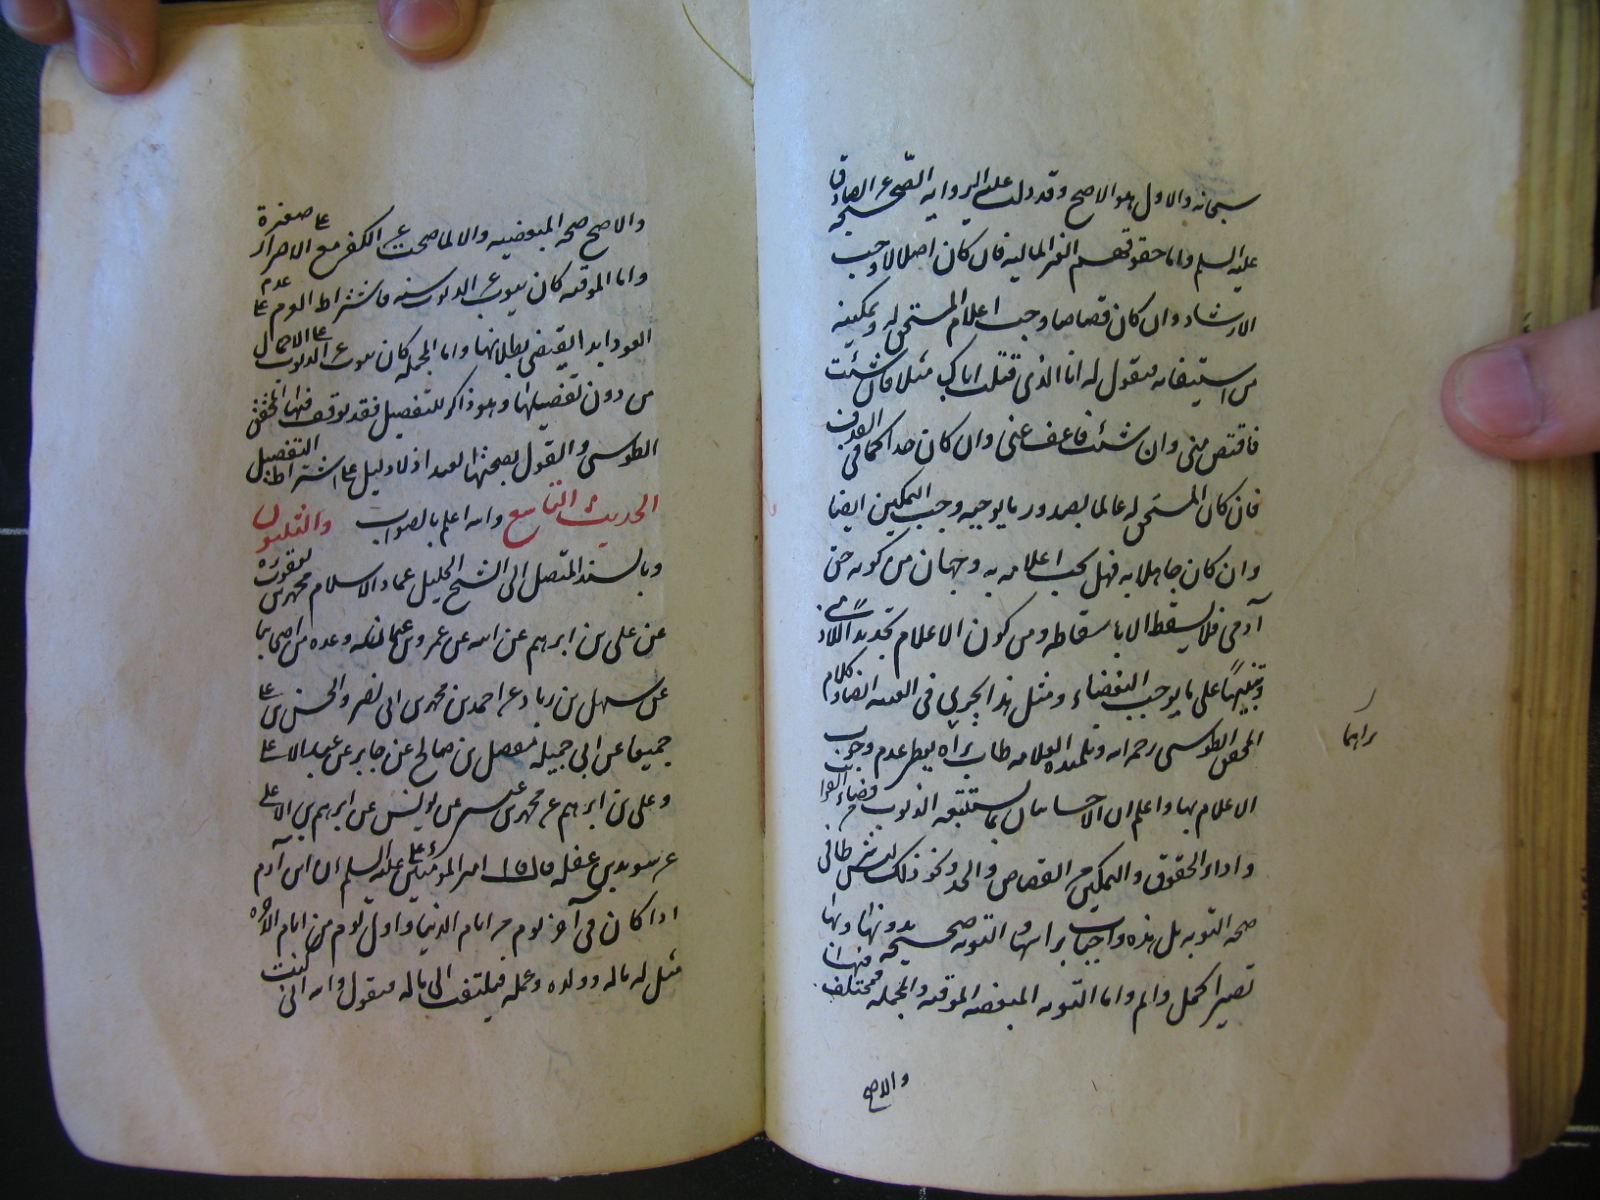 سبحانه والاول هو الاصح وقد دلت عليه الرواية الصحيحة عن الصادق
عليه السلم واما حقوقهم الغير المالية فان كان اضلالا وجب
الارشاد وان كان قصاصا وجب اعلام المستحق له وتمكينه
من استيفائه فيقول له انا الذي قتلت اباك مثلا فان شئت
فاقتص مني وان شئت فاعف عني وان كان حدا كما في القذف
فان كان المستحق له عالما بصدور ما يوجبه وجب التمكين ايضا
وان كان جاهلا به فهل يجب اعلامه به وجهان من كونه حق
آدمي فلا يسقط الا باسقاطه ومن كون الاعلام تجديدا للاذى
وتنبيها على ما يوجب البغضاء ومثل هذا يجري في الغيبة ايضا وكلام
المحقق الطوسي رحمه الله وتلميذه العلامة طاب ثراه يعطي عدم وجوب
الاعلام بها واعلم ان الاتيان بما يستتبعه الذنوب من قضاء الفوائت
واداء الحقوق والتمكين من القصاص والحد ونحو ذلك ليس شرطا في
صحة التوبة بل هذه واجبات براسها والتوبة صحيحة بدونها وبها
تصير اكمل واتم واما التوبة المبعضة الموقتة والمجملة فمختلف فيها
والاصح
براسها
والاصح صحة المبعضة والا لما صحت عن الكفر مع الاصرار على صغيرة
واما الموقتة كان يتوب عن الذنوب سنة فاشتراط العزم على عدم
العود ابدا يقتضي بطلانها واما المجملة كان يتوب عن الذنوب على الاجمال
من دون تفصيلها وهو ذاكر للتفصيل فقد توقف فيها المحقق
الطوسي والقول بصحتها اذ لا دليل على اشتراط التفصيل
والله اعلم بالصواب الحديث التاسع والثلثون
وبالسند المتصل الى الشيخ الجليل عماد الاسلام محمد بن يعقوب
عن علي بن ابرهيم عن ابيه عن عمرو بن عثمان وعدة من اصحابنا
عن سهل بن زياد عن احمد بن محمد بن ابي نصر والحسن بن علي
جميعا عن ابي جميلة مفضل بن صالح عن جابر عن عبد الاعلى
وعلي بن ابرهيم عن محمد بن عيسى عن يونس عن ابرهيم بن عبد الاعلى
عن سويد بن غفلة قال قال امير المؤمنين عليه السلم ان ابن آدم
اذا كان في آخر يوم من ايام الدنيا واول يوم من ايام الآخرة
مثل له ماله وولده وعمله فيلتفت الى ماله فيقول والله اني كنت